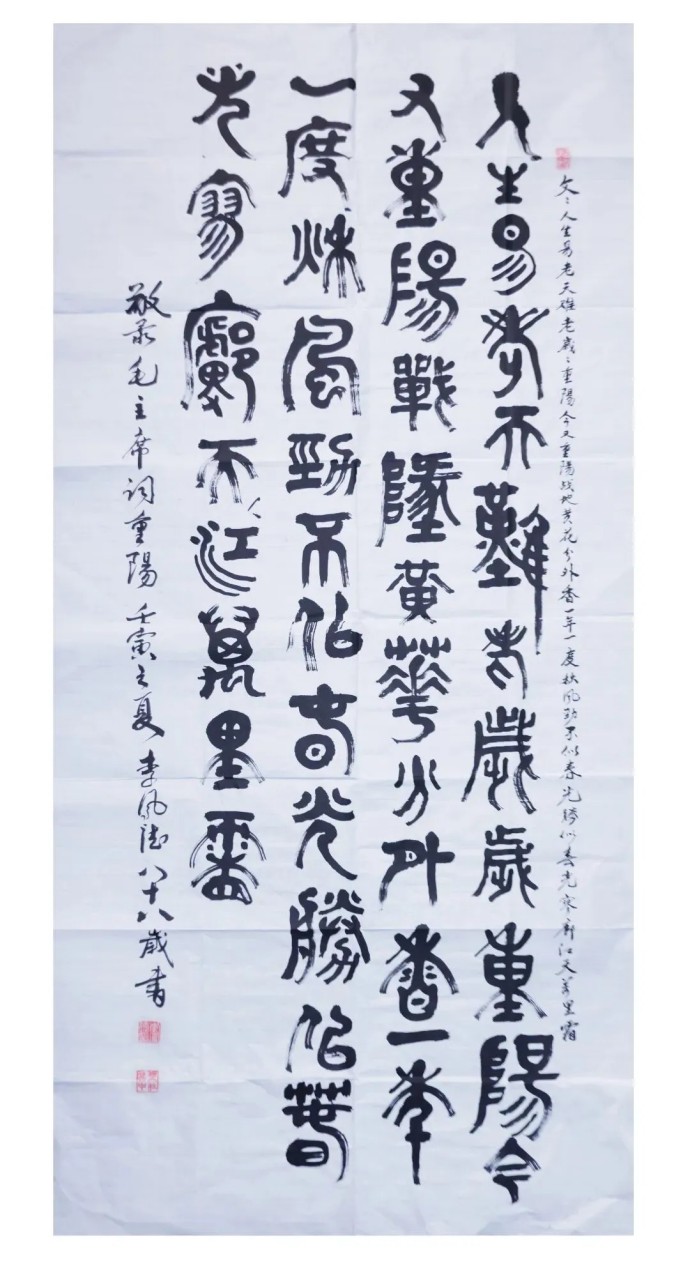 文：人生易老天难老歲〻重陽今又重陽战地黄花分外香一年一度秋风劲不似春光勝似春光寥廓江天万里霜
人生易老天難老歲歲重陽今
又重陽戰墬黃華分外香一年
一度秋風勁不佀春光勝佀春
光寥廓天江萬里霜
敬录毛主席词重陽 壬寅之夏 李风 八十八歲書